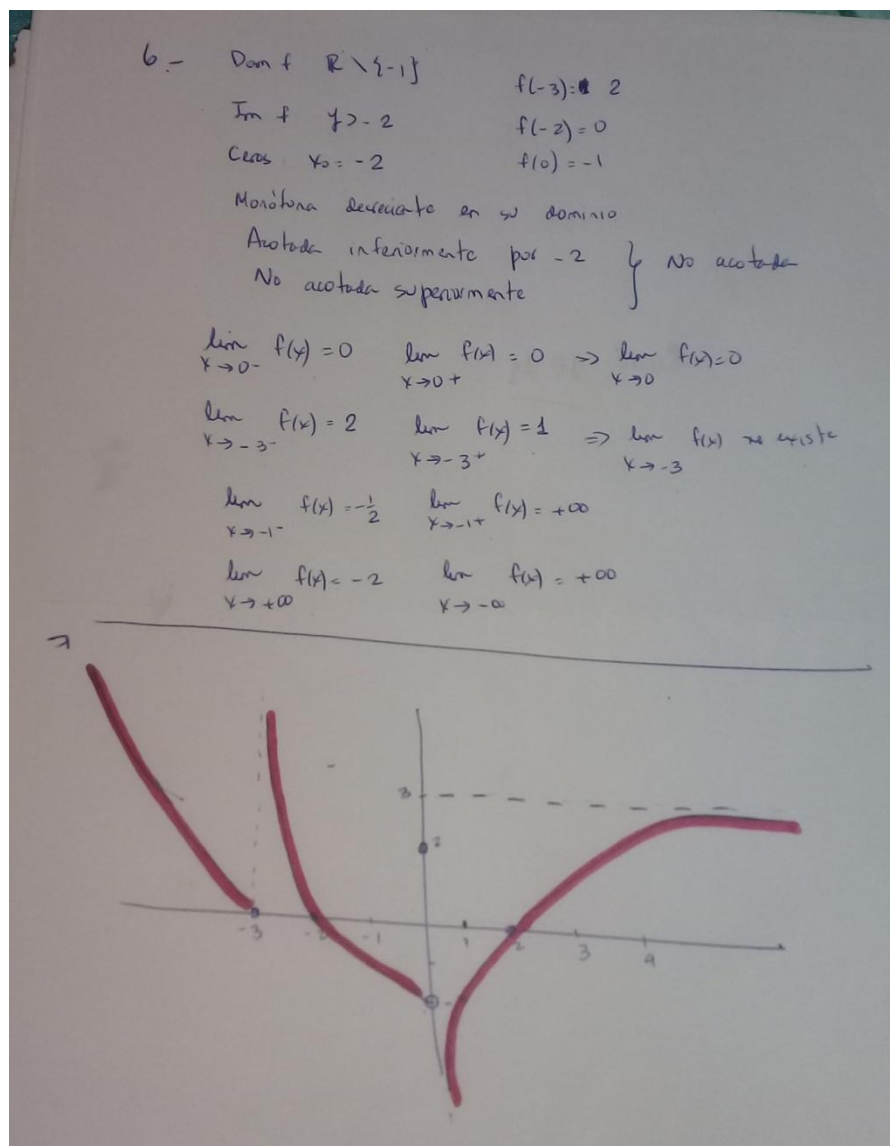 6.- Dom f R \ {-1}
f(-3)= 2
Im f y>-2
f(-2)=0
Ceros x₀=-2
f(0)=-1
Monótona decreciente en su dominio
Acotada inferiormente por -2 } No acotada
No acotada superiormente
lim x→0- f(x)=0 lim x→0+ f(x)=0 => lim x→0 f(x)=0
lim x→-3- f(x)=2 lim x→-3+ f(x)=1 => lim x→-3 f(x) no existe
lim x→-1- f(x)=-1/2 lim x→-1+ f(x)=+∞
lim x→+∞ f(x)=-2 lim x→-∞ f(x)=+∞
7
3
2
-3 -2 -1 1 2 3 4